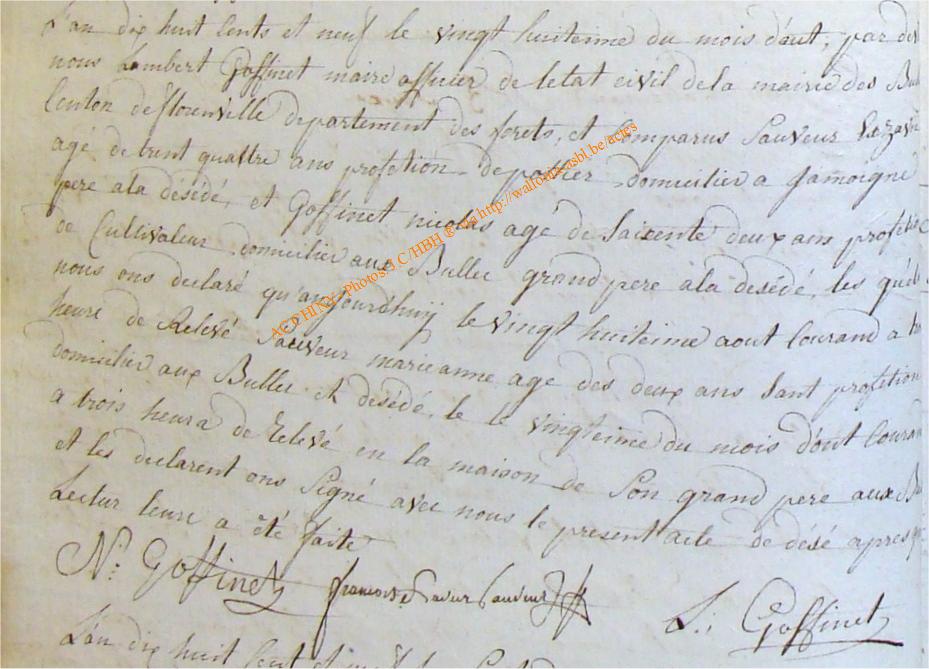 L'an dix huit Cents et neuf le vingt huiteime du mois d'aut, par de
nous Lambert Goffinet maire officier de letat civil de la mairie des Bu
Centon deflorenville departement des forets, et Comparus Sauveur
agé de trent quattre ans profetion de potier domicilier a Jamoigne
pere a la désédé, et Goffinet nicolas agé de Soicente deux ans profetion
de Cultivateur domicilier aux Bulles grand pere a la désédé, les quels
nous ons declaré qu'anjourdhuy le vingt huiteime aout Courand a
heure de Relevé Sauveur marieanne age des deux ans Sant profetion
domicilier aux Bulles et désédé, le le vingteime du mois dout Courand
a trois heura de relevé en la maison de Son grand pere aux B
et les declarent ons Signé avec nous le present acte de désé apres q
Lectur leure a été faite
N: Goffinet Sauveur L: Goffinet
L'an dix huit Cent et neuf le
ACDHINY - Photos J.C/HBH @ via http://wallonia-asbl.be/actes